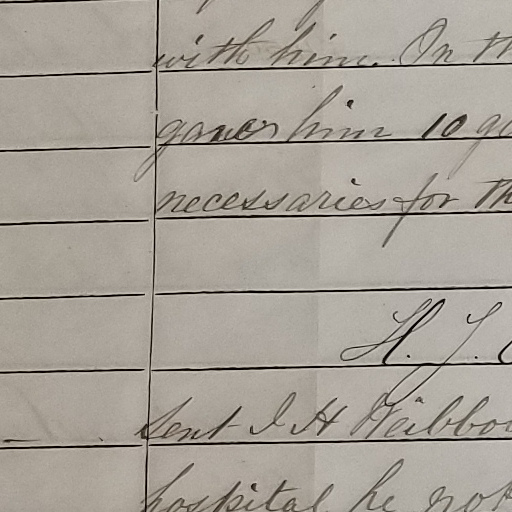 with him. On th
gave him 10 ga
necessaries for th
H. J.
Sent I H
hospital he not